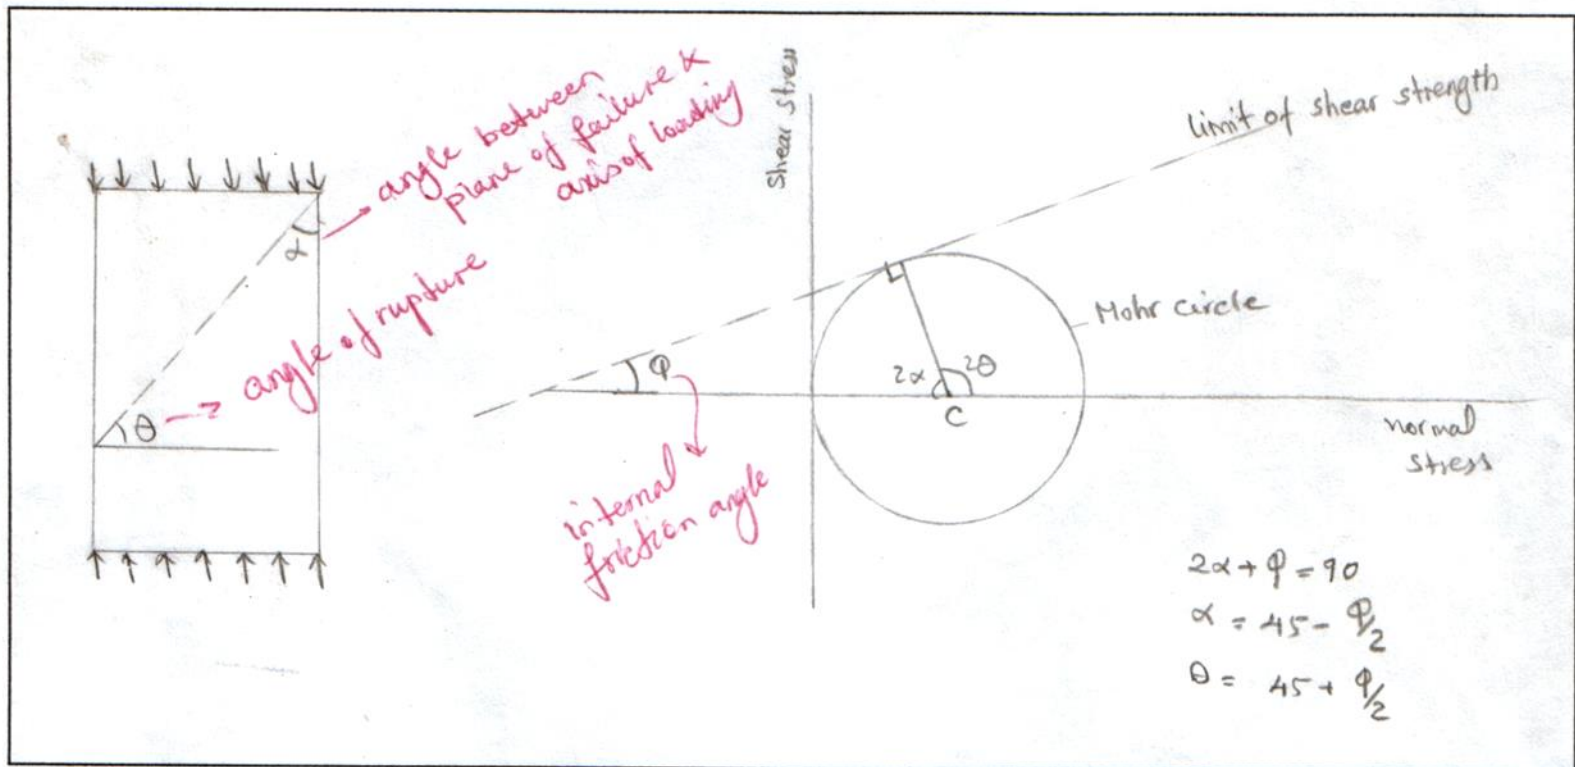 angle between
plane of failure &
axis of loading
α
angle of rupture
θ
shear stress
limit of shear strength
Mohr circle
φ
2α
2θ
C
normal
stress
internal
friction angle
2α + φ = 90
α = 45 - φ/2
θ = 45 + φ/2